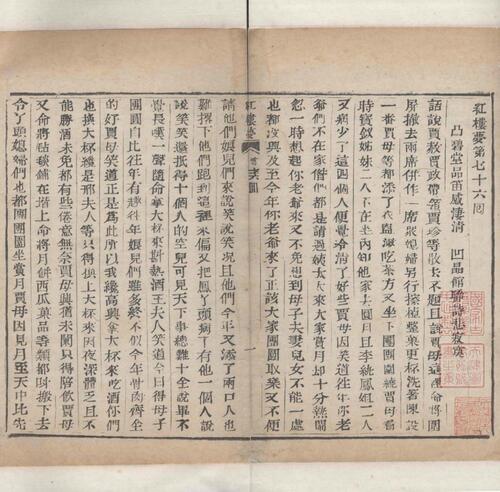 紅樓夢第七十六回
凸碧堂品笛感凄清　凹晶館聯詩悲寂寞
話說賈赦賈政帶領賈珍等散去不題且說賈母這裡命將圍
屏撤去兩席併作一席眾媳婦另行擦桌整菓更杯洗著陳設
一番賈母等都添了衣盥漱吃茶方又坐下團團圍繞賈母看
時寶釵姊妹二人不在坐內知他家去圓月且李紈鳳姐二人
又病少了這四個人便覺冷清了好些賈母因笑道往年你老
爺們不在家偺們都是請過姨太太來大家賞月却十分熱鬧
忽一時想起你老爺來又不免想到母子夫妻兒女不能一處
也都沒興及至今年你老爺來了正該大家團圓取樂又不便
紅樓夢
請他們娘兒們來說笑說笑况且他們今年又添了兩口人也
難撂下他們跑到這裡來偏又把鳳丫頭病了有他一個人說
說笑笑還抵得十個人的空兒可見天下事總難十全說畢不
覺長嘆一聲隨命拿大杯來斟熱酒王夫人笑道今日得母子
團圓自比往年有趣往年娘兒們雖多終不似今年骨肉齊全
的好賈母笑道正是為此所以我纔高興拿大杯來吃酒你們
也換大杯纔是邢夫人等只得換上大杯來因夜深體乏且不
能勝酒未免都有些倦意無奈賈母興猶未闌只得陪飲賈母
又命將毡毯鋪在階上命將月餅西瓜菓品等類都叫搬下去
令丫頭媳婦們也都團團圍坐賞月賈母因見月至天中比先